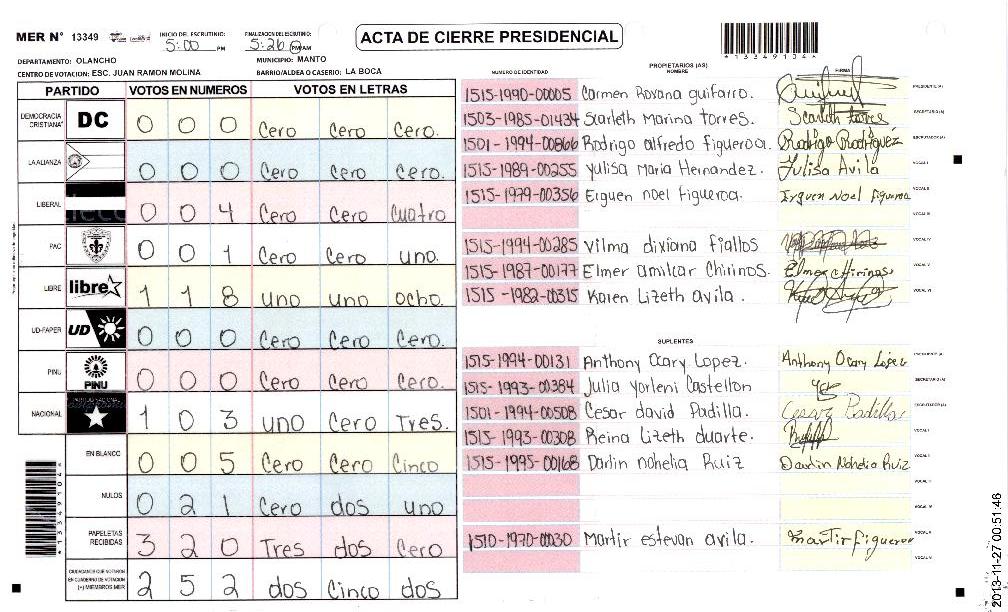 MER N° 13349
INICIO DEL ESCRUTINIO: 5:00 PM
FINALIZACION DEL ESCRUTINIO: 5:26 PM AM
ACTA DE CIERRE PRESIDENCIAL
*13349104*
DEPARTAMENTO: OLANCHO
MUNICIPIO: MANTO
CENTRO DE VOTACION: ESC. JUAN RAMON MOLINA
BARRIO/ALDEA O CASERIO: LA BOCA
PARTIDO VOTOS EN NUMEROS VOTOS EN LETRAS
DEMOCRACIA CRISTIANA DC 0 0 0 Cero Cero Cero.
LA ALIANZA 0 0 0 Cero Cero Cero.
LIBERAL 0 0 4 Cero Cero Cuatro
PAC 0 0 1 Cero Cero uno.
LIBRE libre 1 1 8 uno uno ocho.
UD-FAPER UD 0 0 0 Cero Cero Cero.
PINU PINU 0 0 0 Cero Cero Cero.
NACIONAL 1 0 3 uno Cero Tres.
EN BLANCO 0 0 5 Cero Cero Cinco
NULOS 0 2 1 Cero dos uno
PAPELETAS RECIBIDAS 3 2 0 Tres dos Cero
CIUDADANOS QUE VOTARON EN CUADERNO DE VOTACION (+) MIEMBROS MER 2 5 2 dos Cinco dos
*13349104*
NUMERO DE IDENTIDAD PROPIETARIOS (AS) NOMBRE FIRMA
1515-1990-00005 Carmen Roxana guifarro. PRESIDENTE (A)
1503-1985-01434 Scarleth Marina Torres. Scarleth torres SECRETARIO (A)
1501-1994-00866 Rodrigo alfredo figueroa. Rodrigo Rodríguez ESCRUTADOR (A)
1515-1989-00255 Yulisa Maria Hernandez. Yulisa Avila VOCAL I
1515-1979-00356 Erguen noel figueroa. Erguen Noel Figueroa VOCAL II
VOCAL III
1515-1994-00285 Vilma dixiana fiallos VOCAL IV
1515-1987-00177 Elmer amilcar Chirinos. Elmer Chirinos VOCAL V
1515-1982-00315 Karen Lizeth avila. VOCAL VI
SUPLENTES
1515-1994-00131 Anthony Ocary Lopez. Anthony Ocary López PRESIDENTE (A)
1515-1993-00384 Julia Yorleni Castellon SECRETARIO (A)
1501-1994-00508 Cesar david Padilla. Cesar Padilla ESCRUTADOR (A)
1515-1993-00308 Reina Lizeth duarte. VOCAL I
1515-1995-00168 Darlin nohelia Ruiz Darlin Nohelia Ruiz VOCAL II
VOCAL III
VOCAL IV
1510-1970-00030 Martir estevan avila. martir figueroa VOCAL V
VOCAL VI
2013-11-27 00:51:46